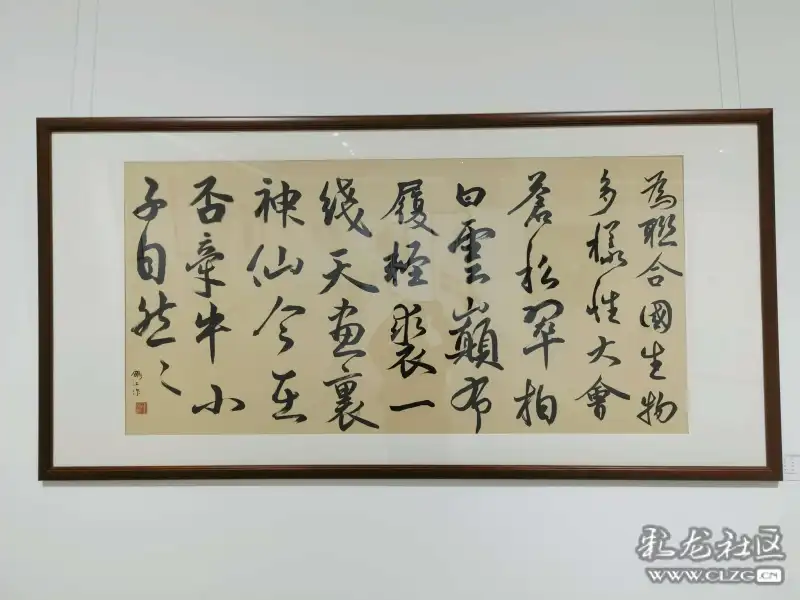 為聯合國生物
多樣性大會
蒼松翠柏
白雲巔布
履輕裘一
綫天畫裏
神仙今在
否牽牛小
子自然々
彩龙社区
WWW.CLZG.CN